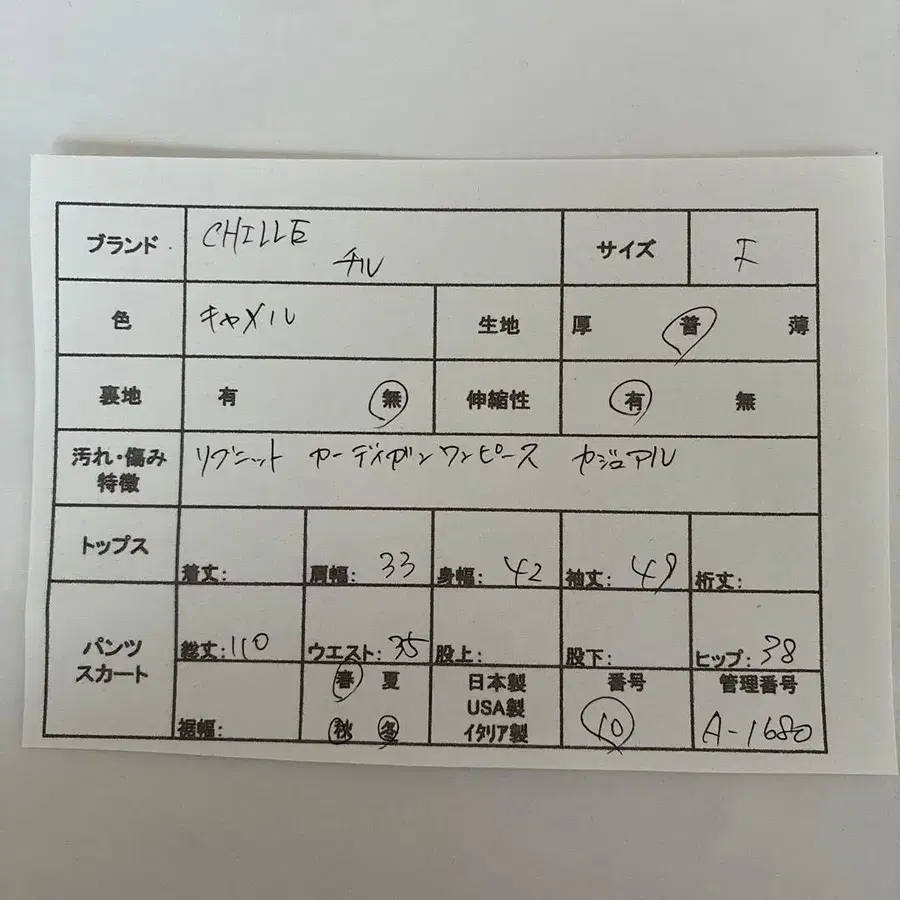 ブランド CHILLE サイズ F
チル
色 キャメル 生地 厚 普 薄
裏地 有 無 伸縮性 有 無
汚れ・傷み リブニット カーディガンワンピース カジュアル
特徴
トップス 着丈: 肩幅: 33 身幅: 42 袖丈: 49 裄丈:
パンツ 総丈:110 ウエスト:35 股上: 股下: ヒップ:38
スカート
春 夏 日本製 番号 管理番号
USA製
裾幅: 秋 冬 イタリア製 10 A-1680